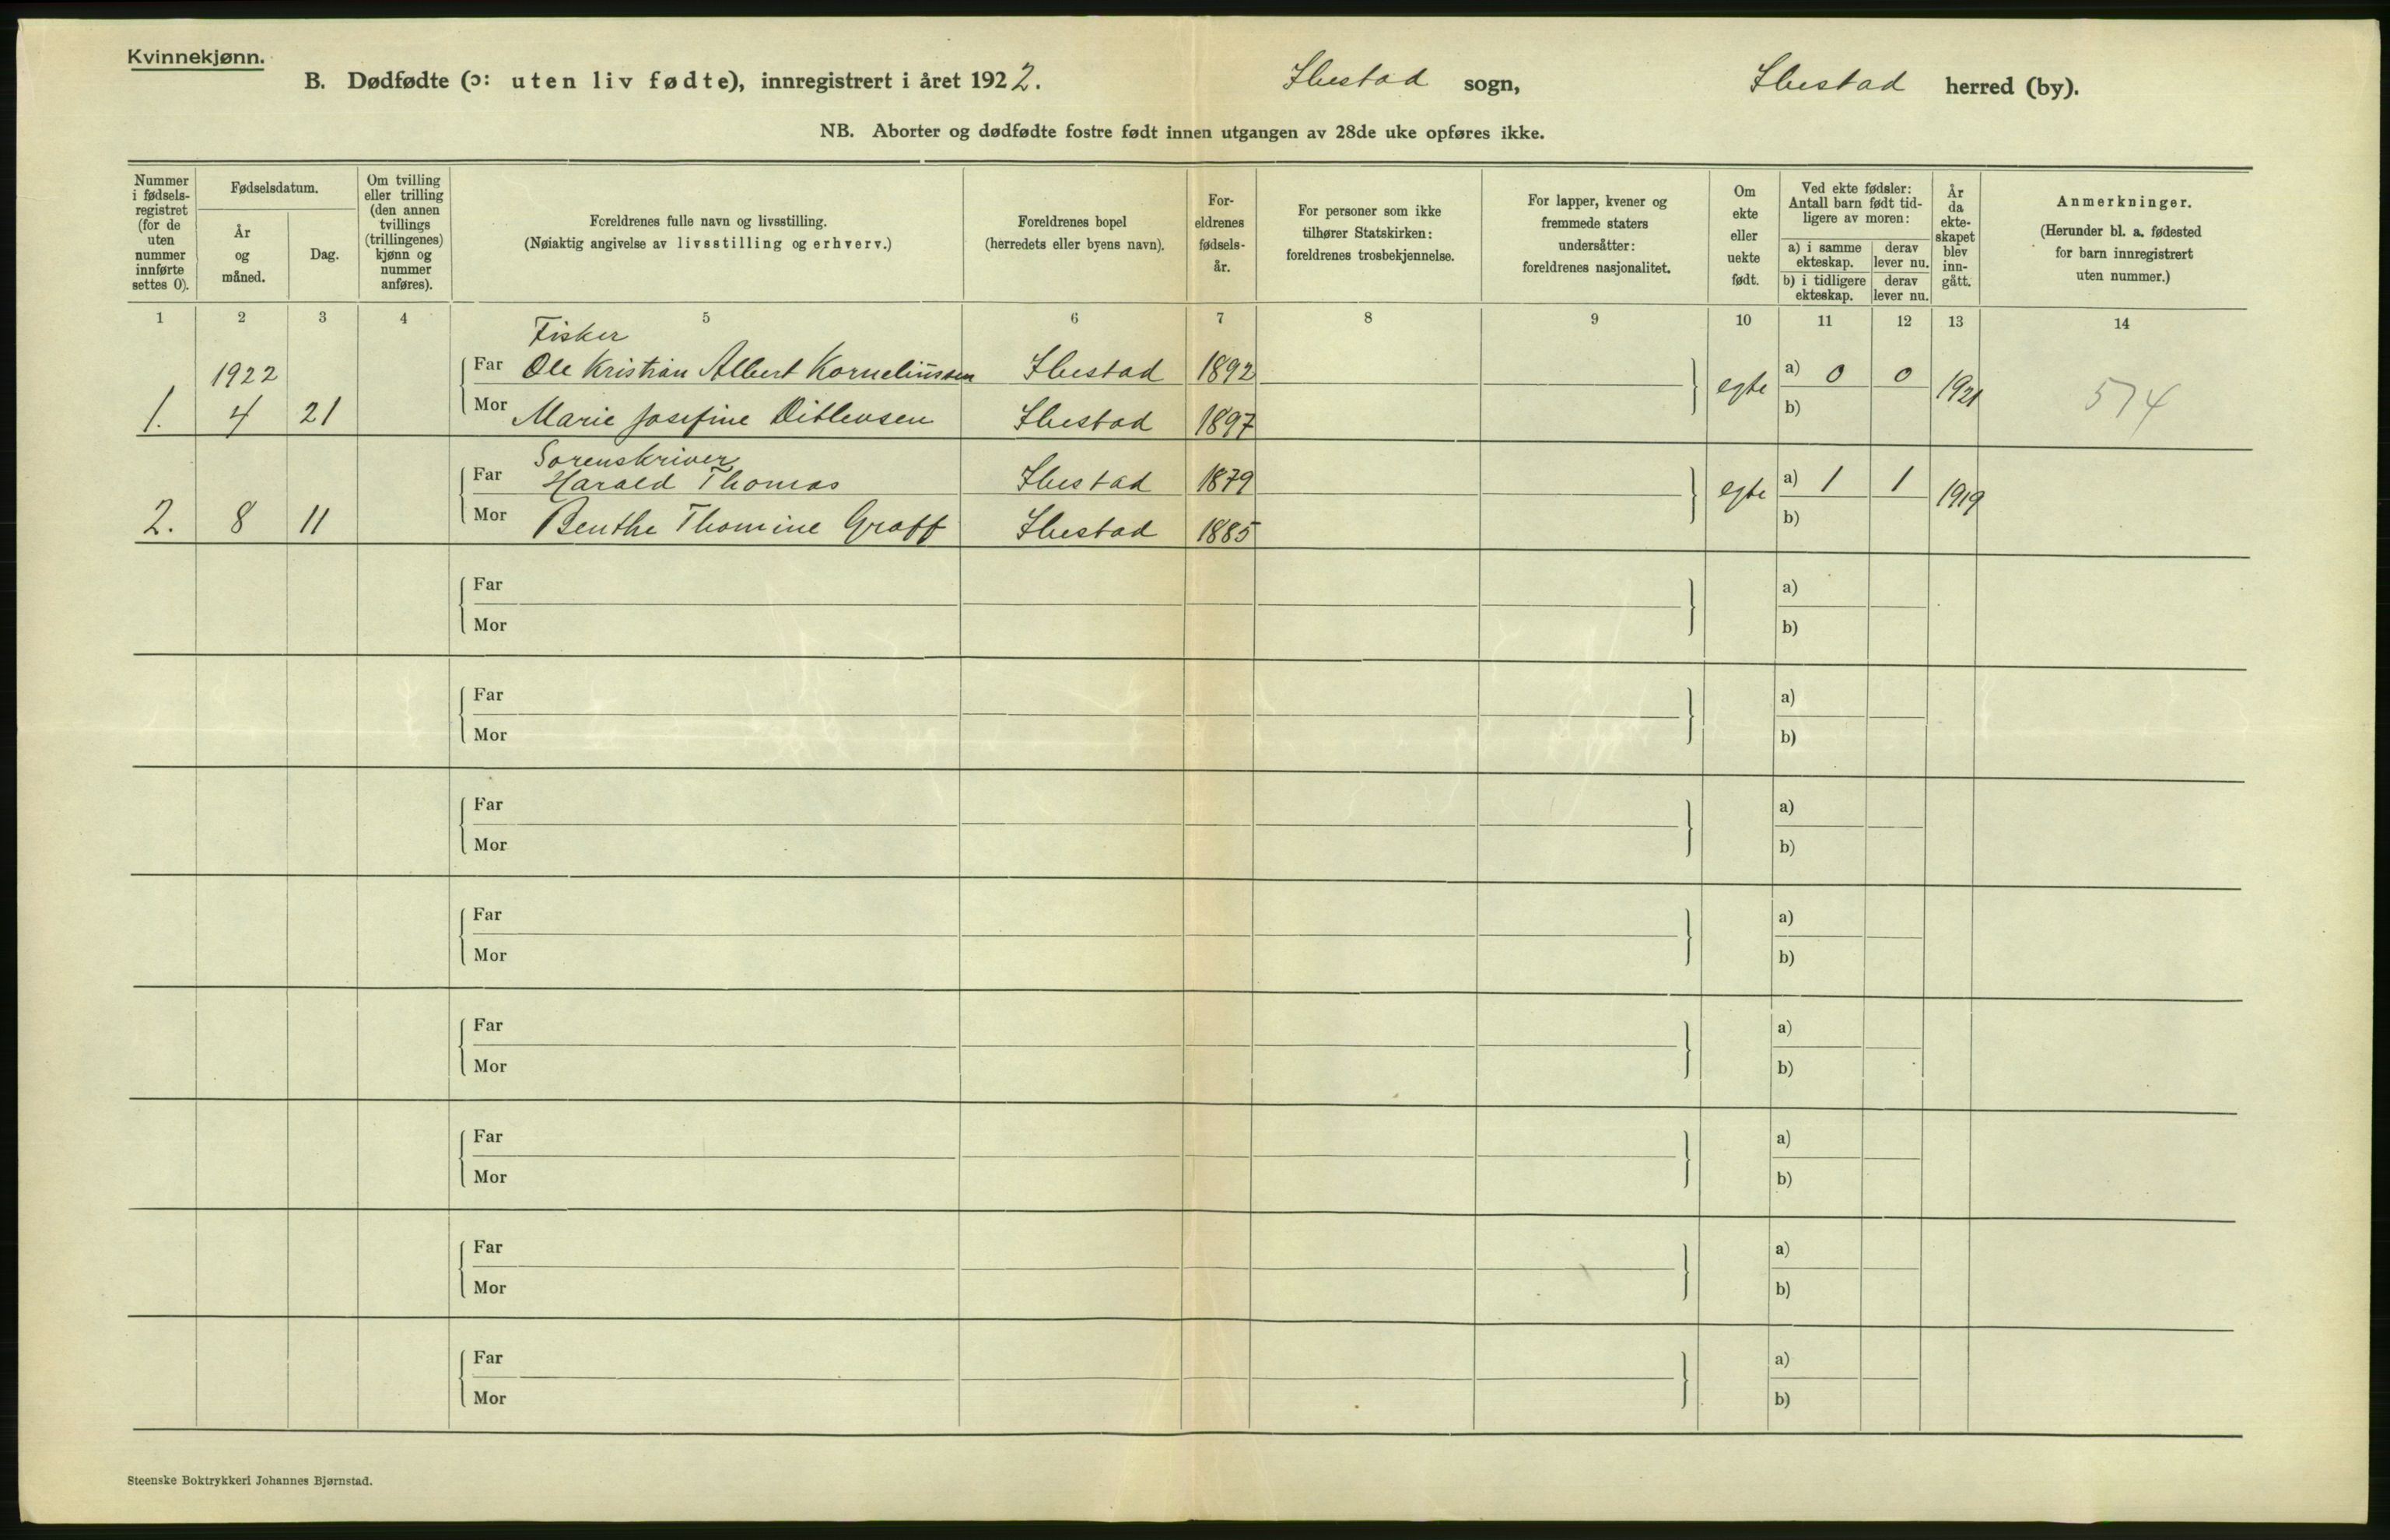 Kvinnekjønn.
B. Dødfødte (ɔ: uten liv fødte), innregistrert i året 1922. Ibestad sogn, Ibestad herred (by).
NB. Aborter og dødfødte fostre født innen utgangen av 28de uke opføres ikke.
Nummer i fødsels-registret (for de uten nummer innførte settes 0).
Fødselsdatum.
År og måned.
Dag.
Om tvilling eller trilling (den annen tvillings (trillingenes) kjønn og nummer anføres).
Foreldrenes fulle navn og livsstilling.
(Nøiaktig angivelse av livsstilling og erhverv.)
Foreldrenes bopel
(herredets eller byens navn).
For-eldrenes fødsels-år.
For personer som ikke tilhører Statskirken: foreldrenes trosbekjennelse.
For lapper, kvener og fremmede staters undersåtter: foreldrenes nasjonalitet.
Om ekte eller uekte født.
Ved ekte fødsler: Antall barn født tid-ligere av moren:
a) i samme ekteskap. derav lever nu.
b) i tidligere ekteskap. derav lever nu.
År da ekte-skapet blev inn-gått.
Anmerkninger.
(Herunder bl. a. fødested for barn innregistrert uten nummer.)
1 2 3 4 5 6 7 8 9 10 11 12 13 14
Fisker
1922 Far Ole Kristian Albert Korneliussen Ibestad 1892 egte a) 0 0 1921 574
1. 4 21 Mor Marie Josefine Ditlevsen Ibestad 1897 b)
Sorenskriver
Far Harald Thomas Ibestad 1879 egte a) 1 1 1919
2. 8 11 Mor Benthe Thomine Groff Ibestad 1885 b)
Far a)
Mor b)
Far a)
Mor b)
Far a)
Mor b)
Far a)
Mor b)
Far a)
Mor b)
Far a)
Mor b)
Far a)
Mor b)
Far a)
Mor b)
Steenske Boktrykkeri Johannes Bjørnstad.